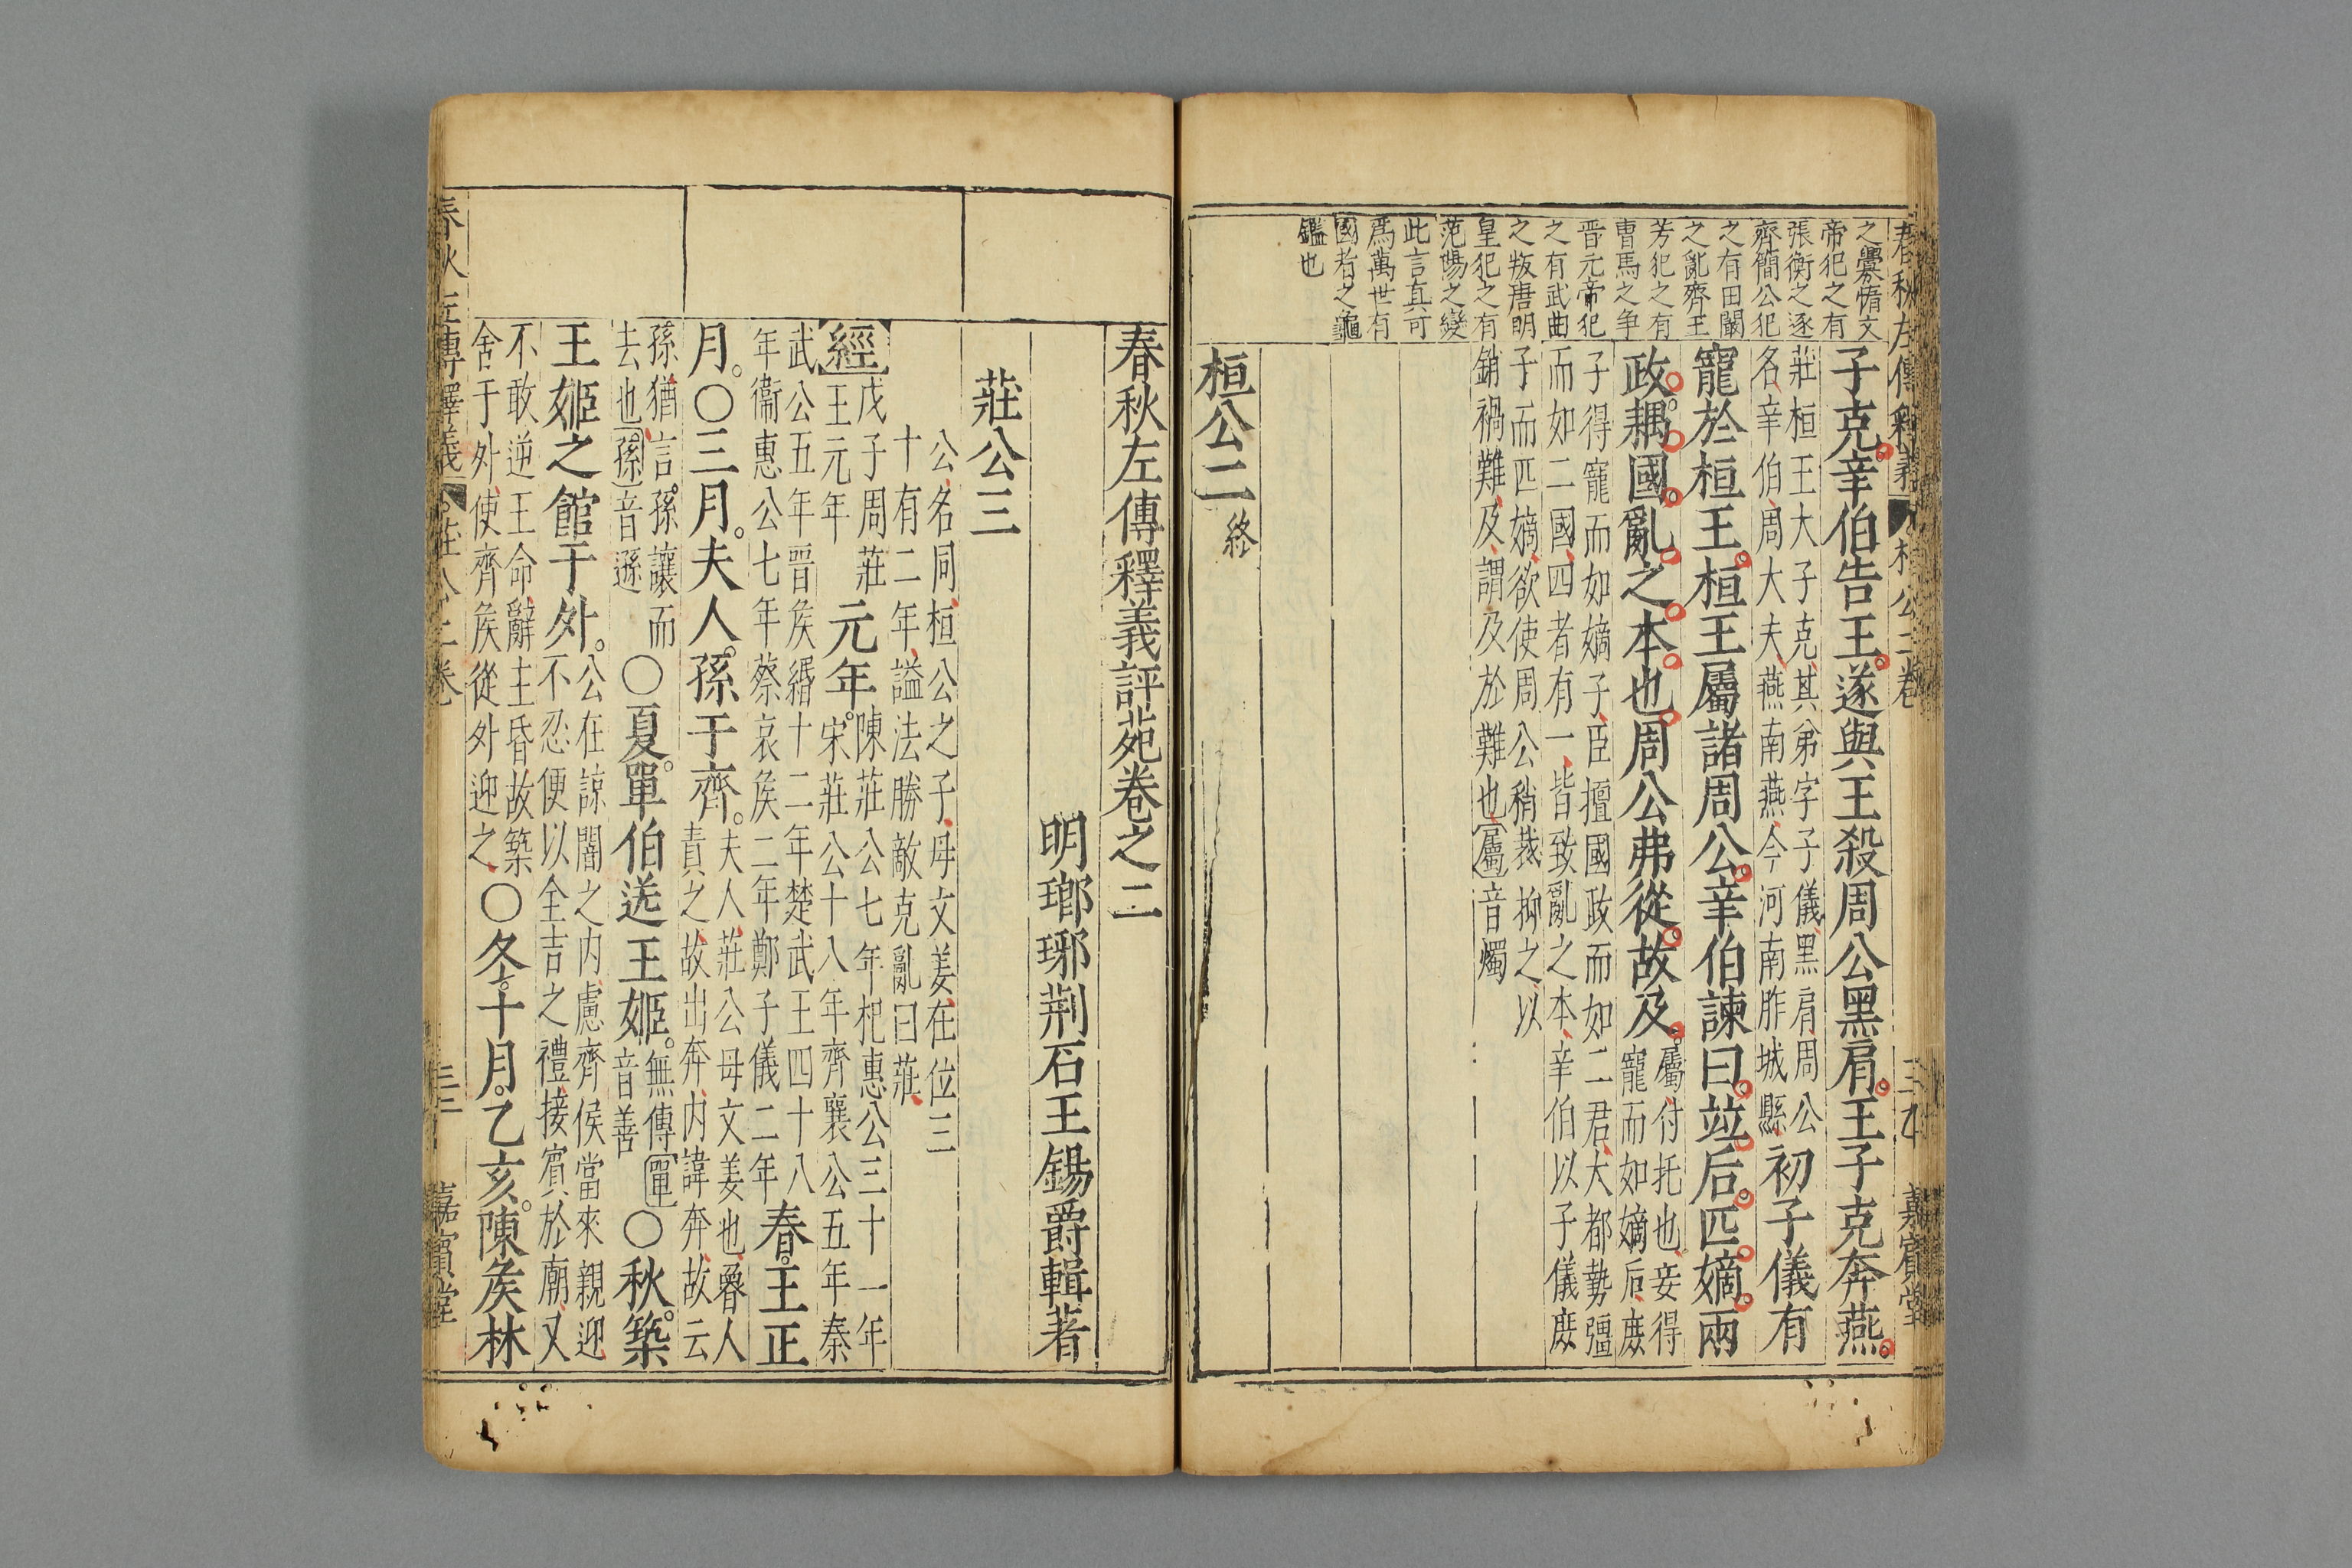 春秋左傳釋義
桓公二卷
嘉賓堂
之釁惰文
帝犯之有
張衡之逐
齊簡公犯
之有田闞
之亂齊王
芳犯之有
曹馬之爭
晉元帝犯
之有武曲
之叛唐明
皇犯之有
范陽之變
此言真可
爲萬世有
國者之龜
鑑也
子克。辛伯告王。遂與王殺周公黑肩。王子克奔燕。
莊桓王大子克、其弟字子儀、黑肩、周公
名、辛伯、周大夫、燕南燕、今河南胙城縣、
初子儀有
寵於桓王。桓王屬諸周公。辛伯諫曰。竝后。匹嫡。兩
政。耦國。亂之本也。周公弗從。故及。
屬、付托也、妾得
寵而如嫡后、庶
子得寵而如嫡子、臣擅國政而如二君、大都勢彊
而如二國、四者有一、皆致亂之本、辛伯以子儀庶
子而匹嫡、欲使周公稍裁抑之、以
銷禍難、及、謂及於難也、屬音燭
桓公二終
春秋左傳釋義評苑卷之二
明瑯琊荆石王錫爵輯著
莊公三
公、名同、桓公之子、母文姜、在位三
十有二年、謚法勝敵克亂曰莊、
經
戊子周莊
王元年
元年。
陳莊公七年杞惠公三十一年
宋莊公十八年齊襄公五年秦
武公五年晋矦緡十二年楚武王四十八
年衞惠公七年蔡哀矦二年鄭子儀二年
春。王正
月。〇三月。夫人。孫于齊。
夫人、莊公母文姜也、魯人
責之、故出奔、内諱奔、故云
孫猶言孫讓而
去也孫音遜
〇夏。單伯送王姬。
無傳單
音善
〇秋。築
王姬之館于外。
公在諒闇之内、慮齊侯當來親迎、
不忍便以全吉之禮、接賓於廟、又
不敢逆王命、辭主昏故築
舍于外、使齊矦從外迎之、
〇冬。十月。乙亥。陳矦林
春秋左傳釋義
莊公二卷
嘉賓堂